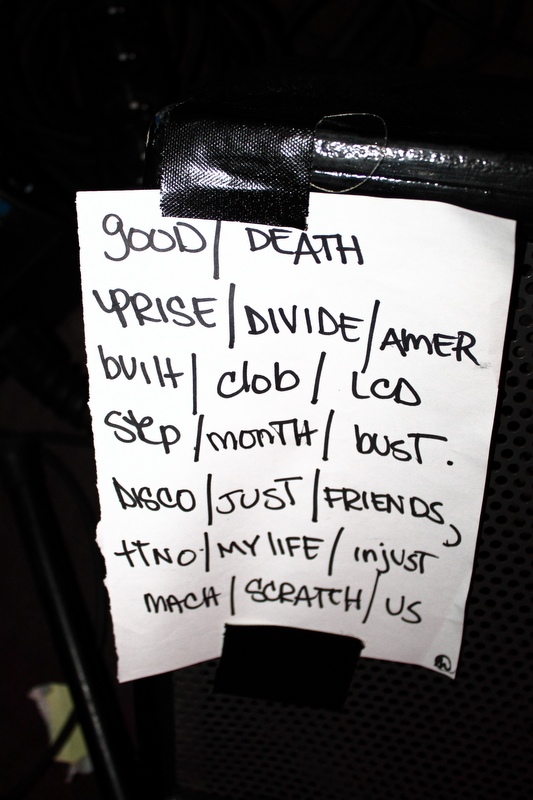 good / DEATH
UPRISE / DIVIDE / AMER
built / clob / LCD
Step / monTH / busT.
DISCO / JUST / FRIENDS,
TTNO / MY lIFE / injusT
MACH / SCRATCH / US